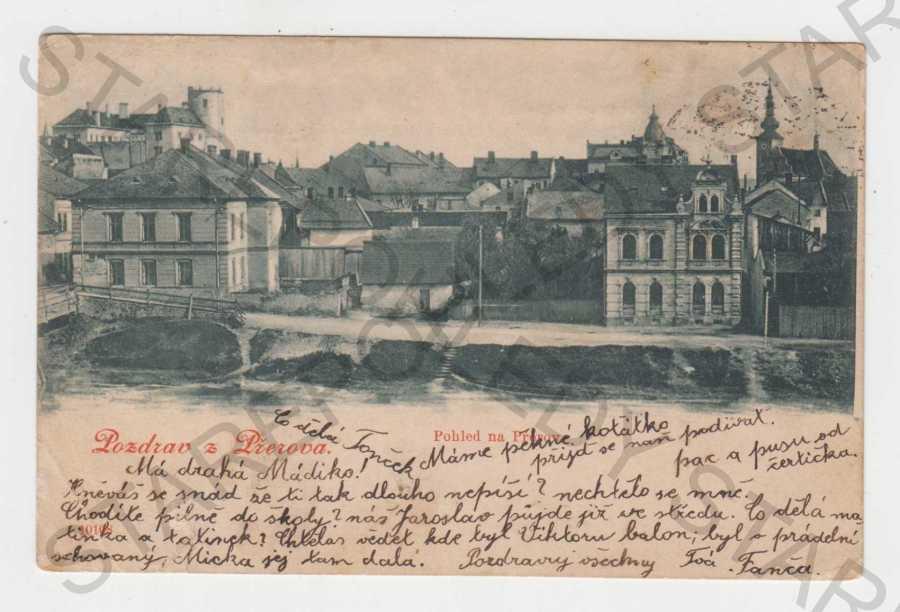 Co dělá Tonček
Pozdrav z Přerova.
Pohled na Přerov.
Máme pěkné koťátko
přijď se naň podívat.
pac a pusu od
čertíčka.
Má drahá Mádiko!
Hněváš se snad že ti tak dlouho nepíší? nechtělo se mně.
Chodíte pilně do školy? náš Jaroslav půjde již ve středu. Co dělá ma-
tinka a tatínek? Chtělas vedět kde byl Viktoru balon, byl v prádelní
schovaný, Micka jej tam dala. Pozdravuj všechny Tvá Fanca.